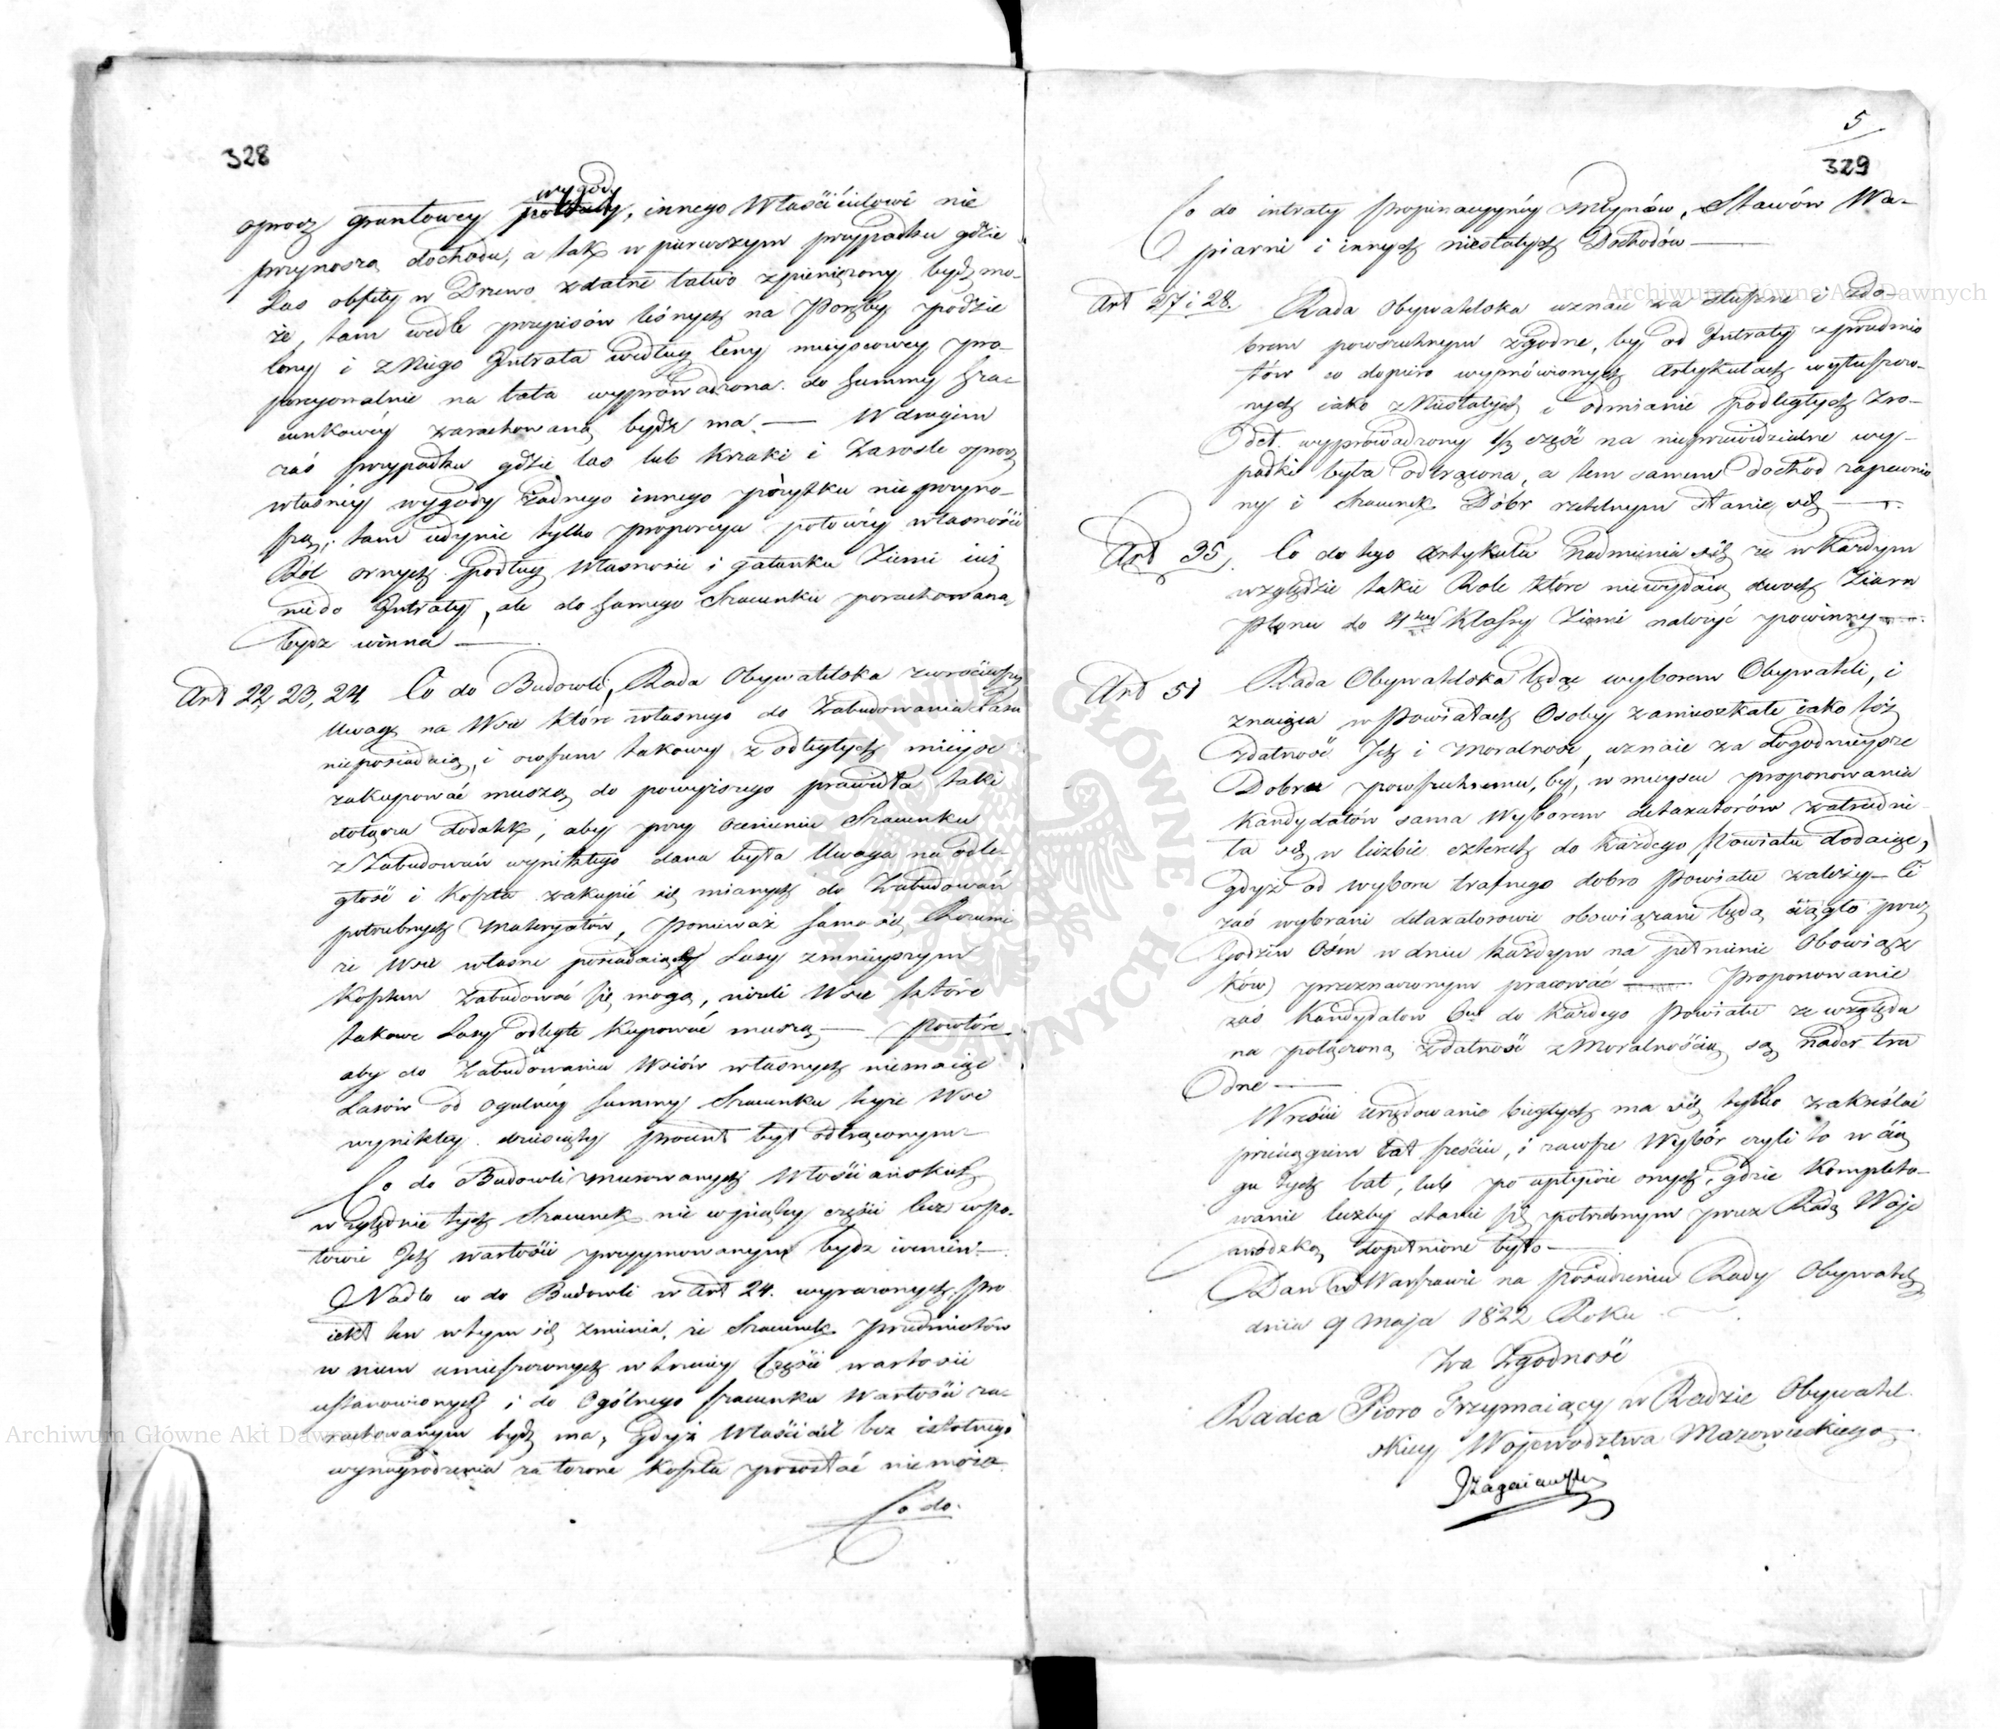 328
oprocz gruntowey wygody, innego Właścicielowi nie
przynoszą dochodu, a tak w pierwszym przypadku gdzie
Las obfity w Drzewo zdatne łatwo spieniężony bydź mo-
że, tam wedle przepisów leśnych na Poręby podzie
lony i z niego Intrata według Ceny mieyscowey pro-
porcyonalnie na lata wyprowadzona do summy sza-
cunkowéy zarachowaną bydź ma. — W drugim
zaś przypadku gdzie las lub krzaki i zarosle oprocz
własnéy wygody żadnego innego pożytku nie przyno-
szą; tam iedynie tylko proporcya połowéy własności
Ról ornych podług własności i gatunku Ziemi iuż
nie do Intraty, ale do samego Szacunku porachowaną
bydz winna —
Art 22, 23, 24. Co do Budowli, Rada Obywatelska zwróciwszy
Uwagę na Wsie które własnego do Zabudowania Lasu
nieposiadaią, i owszem takowy z odległych mieysc
zakupować muszą do powyższego prawidła taki
dołącza dodatek, aby przy ocenieniu Szacunku
z Zabudowań wynikłego dana była Uwaga na odle-
głość i koszta zakupić się mianych do Zabudowań
potrzebnych Materyałów, ponieważ samo się Rozumi
że Wsie własne posiadaiące Lasy zmnieyszym
kosztem Zabudować się mogą, niżeli Wsie które
takowe Lasy odległe kupować muszą — Powtóre.
aby do Zabudowania Wsiów własnych niemaiące
Lasów od ogulnéy summy Szacunku teyże Wsi
wynikłey dziesiąty procent był odtrąconym —
Co do Budowli murowanych Włościańskich
względnie tych Szacunek nie w piątey części lecz w po-
łowie Ich wartości przyymowanym bydz winien —
Nadto co do Budowli w Art 24. wyrażonych, Pro
iekt ten w tym się zmienia, że Szacunek przedmiotów
w niem umieszczonych w trzeciey części wartości
ustanowionych i do Ogólnego szacunku Wartości za-
rachowanym bydź ma, gdyż Właściciel bez istotnego
wynagrodzenia za łożone koszta pozostać nie może
Co do.
5
329
Co do intraty propinacyynéy Młynów, Stawów Pa-
piarni i innych niestałych Dochodów —
Art 27 i 28. Rada Obywatelska uznaie za słuszne i z do
brem powszechnym zgodne, by od Intraty z przedmio
tów co dopiero wymówionych Artykułach wyłuszczo-
nych iako z Niestałych i odmianie podległych Zro-
deł wyprowadzony 1/3 część na nieprzewidzialne wy-
padki była odtrącona, a tem samem dochód zapewnio
ny i Szacunek Dóbr rzetelnym stanie się —
Art 35. Co do tego Artykułu nadmienia się że w każdym
względzie takie Role które niewydaią dwoch Ziarn
Plonu do 4tey Klassy Ziemi należyć powinny —
Art 51 Rada Obywatelska będąc wyborem Obywateli, i
znaiąca w Powiatach Osoby zamieszkałe iako też
zdatność Ich i moralność, uznaie za dogodnieysze
Dobru powszechnemu, by, w mieyscu proponowania
Kandydatów sama Wyborem detaxatorów zatrudni
ła się w liczbie czterech do każdego Powiatu dodaiąc,
gdyż od wyboru trafnego dobro Powiatu zależy — Ci
zaś wybrani detaxatorowie obowiązani będą ciągło przez
Godzin Osm w dniu każdym na pełnienie Obowiąz
ków przeznaczonym pracować — Proponowanie
zaś Kandydatow 6u do każdego Powiatu ze względu
na połączoną zdatność z Moralnością są nader tru
dne —
Wreście urzędowanie biegłych ma się tylko zakreślać
przeciągiem lat sześciu, i zawsze Wybór czyli to w cią
gu tych lat, lub po upływie onych, gdzie kompleto-
wanie liczby stanie się potrzebnym przez Radę Woje
wódzką dopełnione było —
Dan w Warszawie na posiedzeniu Rady Obywatel
dnia 9 Maja 1822 Roku
Za Zgodność
Radca Pioro Trzymaiący w Radzie Obywatel.
skiey Województwa Mazowieckiego
Archiwum Główne Akt Dawnych
Archiwum Główne Akt Dawnych